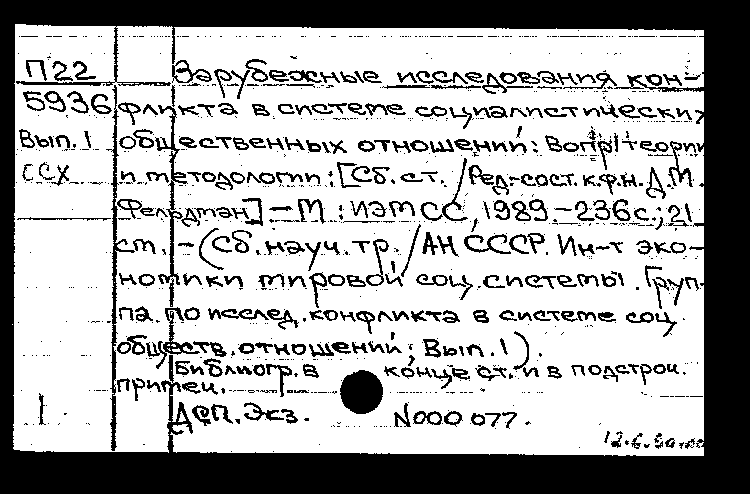 П22 Зарубежные исследования кон-
5936 фликта в системе социалистических
Вып. 1 общественных отношений: Вопр. теории
ССХ и методологии: [Сб. ст. / Ред.-сост. к.ф.н. Д.М.
Фельдман] – М : ИЭМСС, 1989.–236с.; 21
см. – (Сб. науч. тр. / АН СССР. Ин-т эко-
номики мировой соц. системы. Груп-
па по исслед. конфликта в системе соц.
обществ. отношений; Вып. 1).
Библиогр. в конце ст. и в подстроч.
примеч.
1 ДСП. Экз. N000077.